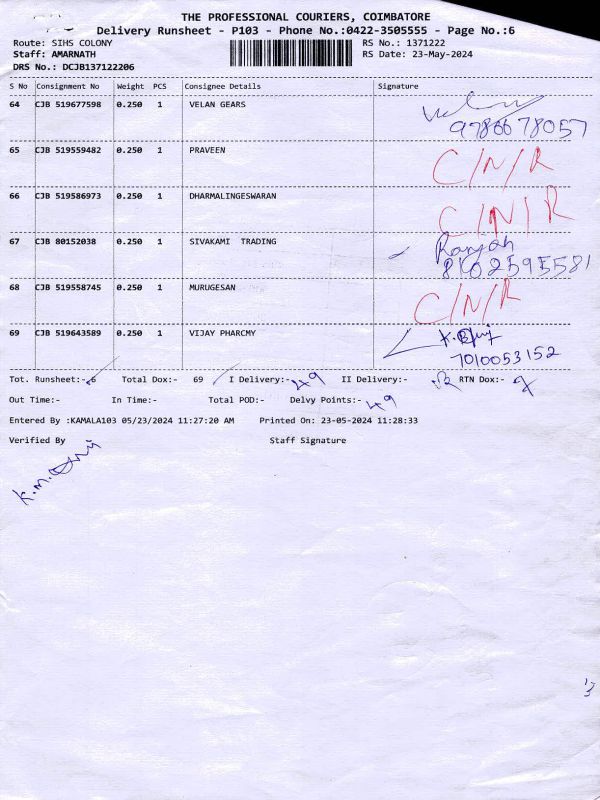 THE PROFESSIONAL COURIERS, COIMBATORE
Delivery Runsheet - P103 - Phone No.:0422-3505555 - Page No.:6
Route: SIHS COLONY RS No.: 1371222
Staff: AMARNATH RS Date: 23-May-2024
DRS No.: DCJB137122206
S No Consignment No Weight PCS Consignee Details Signature
64 CJB 519677598 0.250 1 VELAN GEARS
9786678057
65 CJB 519559482 0.250 1 PRAVEEN C/N/R
66 CJB 519586973 0.250 1 DHARMALINGESWARAN C/N/R
67 CJB 80152038 0.250 1 SIVAKAMI TRADING Ranjah
8102595581
68 CJB 519558745 0.250 1 MURUGESAN C/N/R
69 CJB 519643589 0.250 1 VIJAY PHARCMY
7010053152
Tot. Runsheet:- 6 Total Dox:- 69 I Delivery:- 49 II Delivery:- RTN Dox:-
Out Time:- In Time:- Total POD:- Delvy Points:- 49
Entered By :KAMALA103 05/23/2024 11:27:20 AM Printed On: 23-05-2024 11:28:33
Verified By Staff Signature